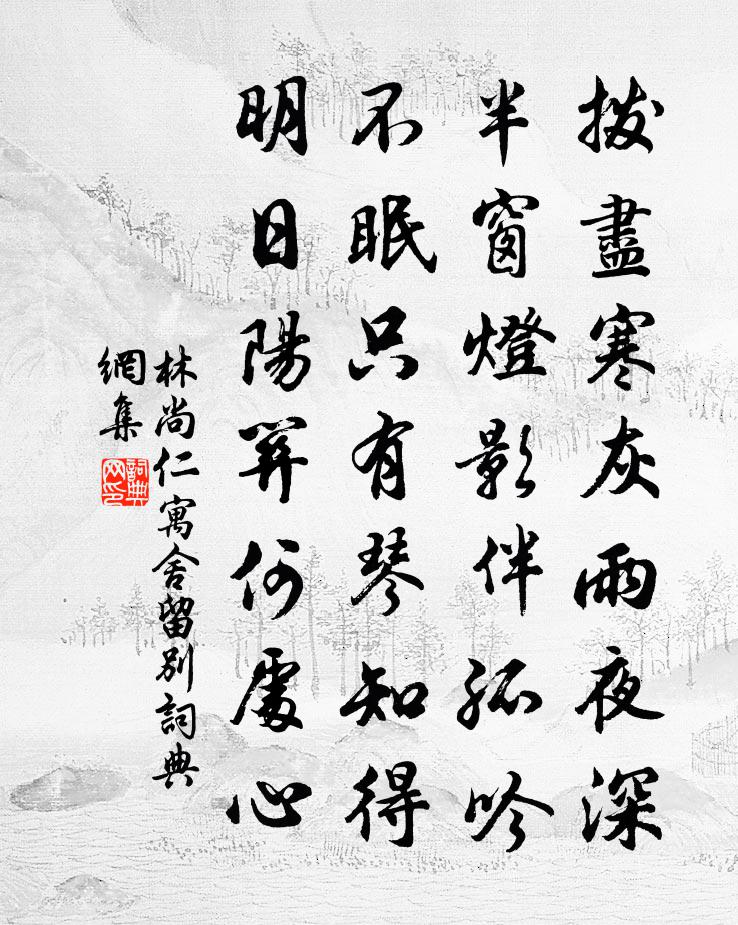 撥盡寒灰雨夜深
半窗燈影伴孤吟
不眠只有琴知得
明日陽關何處心
林尚仁寓舍留別詞典
網集
詞典
网印